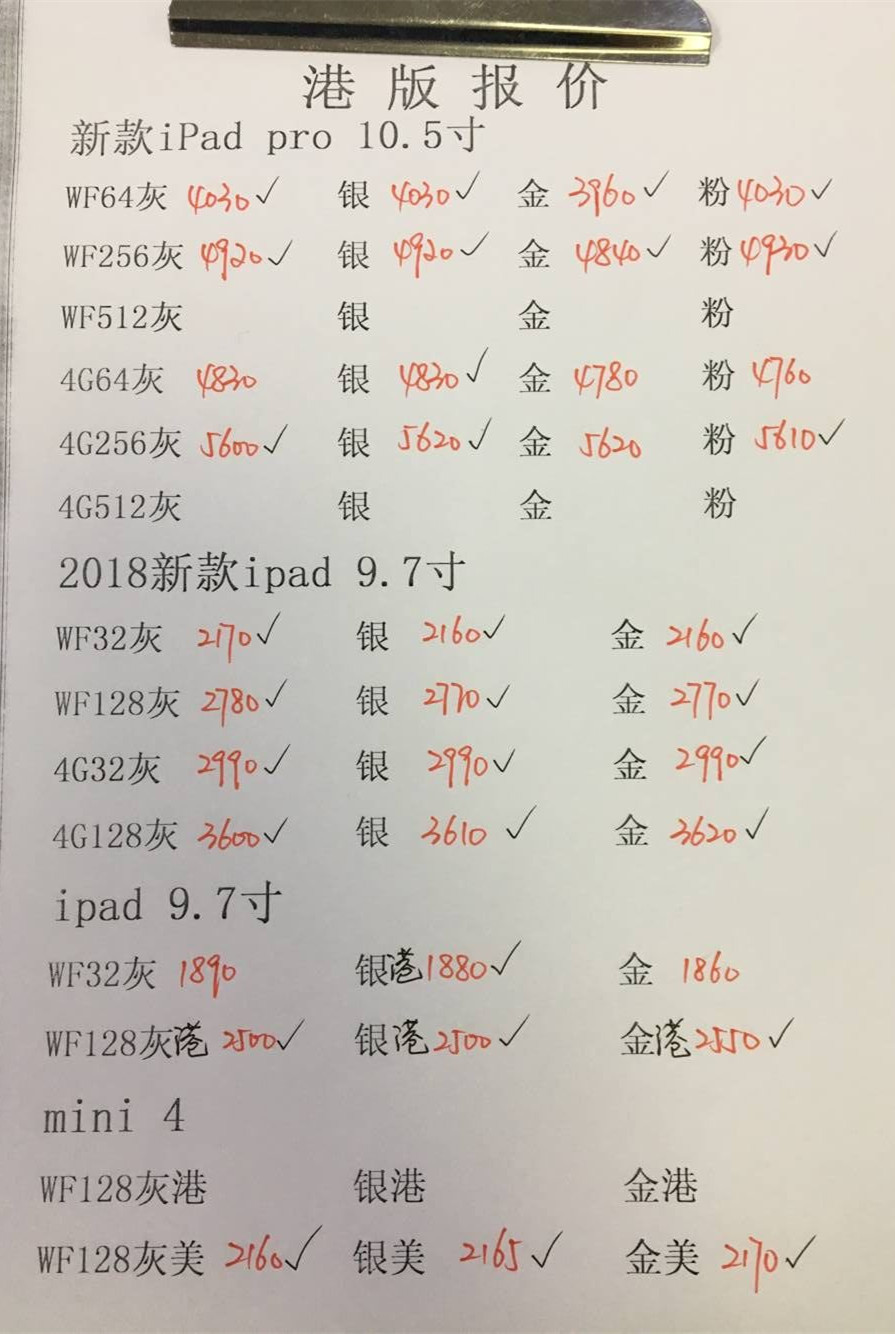 港版报价
新款iPad pro 10.5寸
WF64灰 4030✓ 银 4030✓ 金 3960✓ 粉 4030✓
WF256灰 4920✓ 银 4920✓ 金 4840✓ 粉 4930✓
WF512灰 银 金 粉
4G64灰 4830 银 4830✓ 金 4780 粉 4760
4G256灰 5600✓ 银 5620✓ 金 5620 粉 5610✓
4G512灰 银 金 粉
2018新款ipad 9.7寸
WF32灰 2170✓ 银 2160✓ 金 2160✓
WF128灰 2780✓ 银 2770✓ 金 2770✓
4G32灰 2990✓ 银 2990✓ 金 2990✓
4G128灰 3600✓ 银 3610✓ 金 3620✓
ipad 9.7寸
WF32灰 1890 银港 1880✓ 金 1860
WF128灰港 2500✓ 银港 2500✓ 金港 2550✓
mini 4
WF128灰港 银港 金港
WF128灰美 2160✓ 银美 2165✓ 金美 2170✓